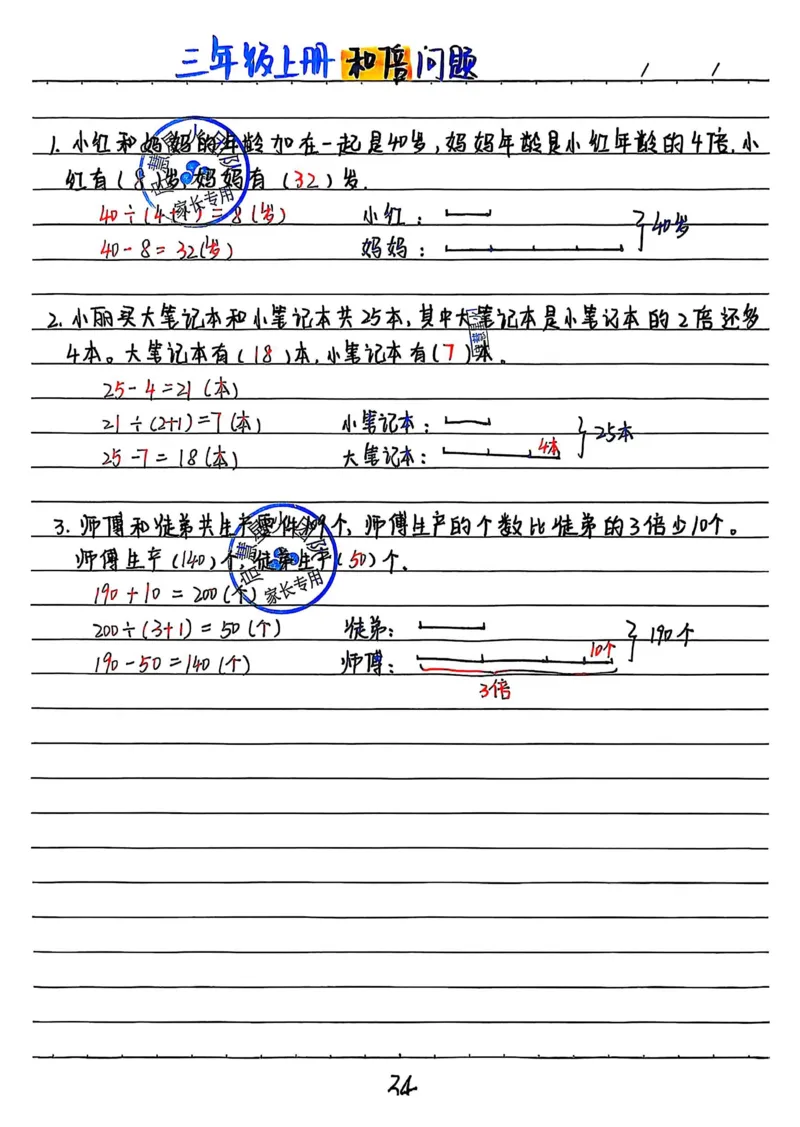 三年级上册 和倍问题
1. 小红和妈妈的年龄加在一起是40岁,妈妈年龄是小红年龄的4倍.小
红有(8)岁,妈妈有(32)岁.
40÷(4+1)=8(岁) 小红: 40岁
40-8=32(岁) 妈妈:
2. 小丽买大笔记本和小笔记本共25本,其中大笔记本是小笔记本的2倍还多
4本。大笔记本有(18)本,小笔记本有(7)本.
25-4=21(本)
21÷(2+1)=7(本) 小笔记本: 25本
25-7=18(本) 大笔记本: 4本
3. 师傅和徒弟共生产零件190个,师傅生产的个数比徒弟的3倍少10个。
师傅生产(140)个,徒弟生产(50)个.
190+10=200(个)
200÷(3+1)=50(个) 徒弟: 190个
190-50=140(个) 师傅: 10个
3倍
家长专用
家长专用
34